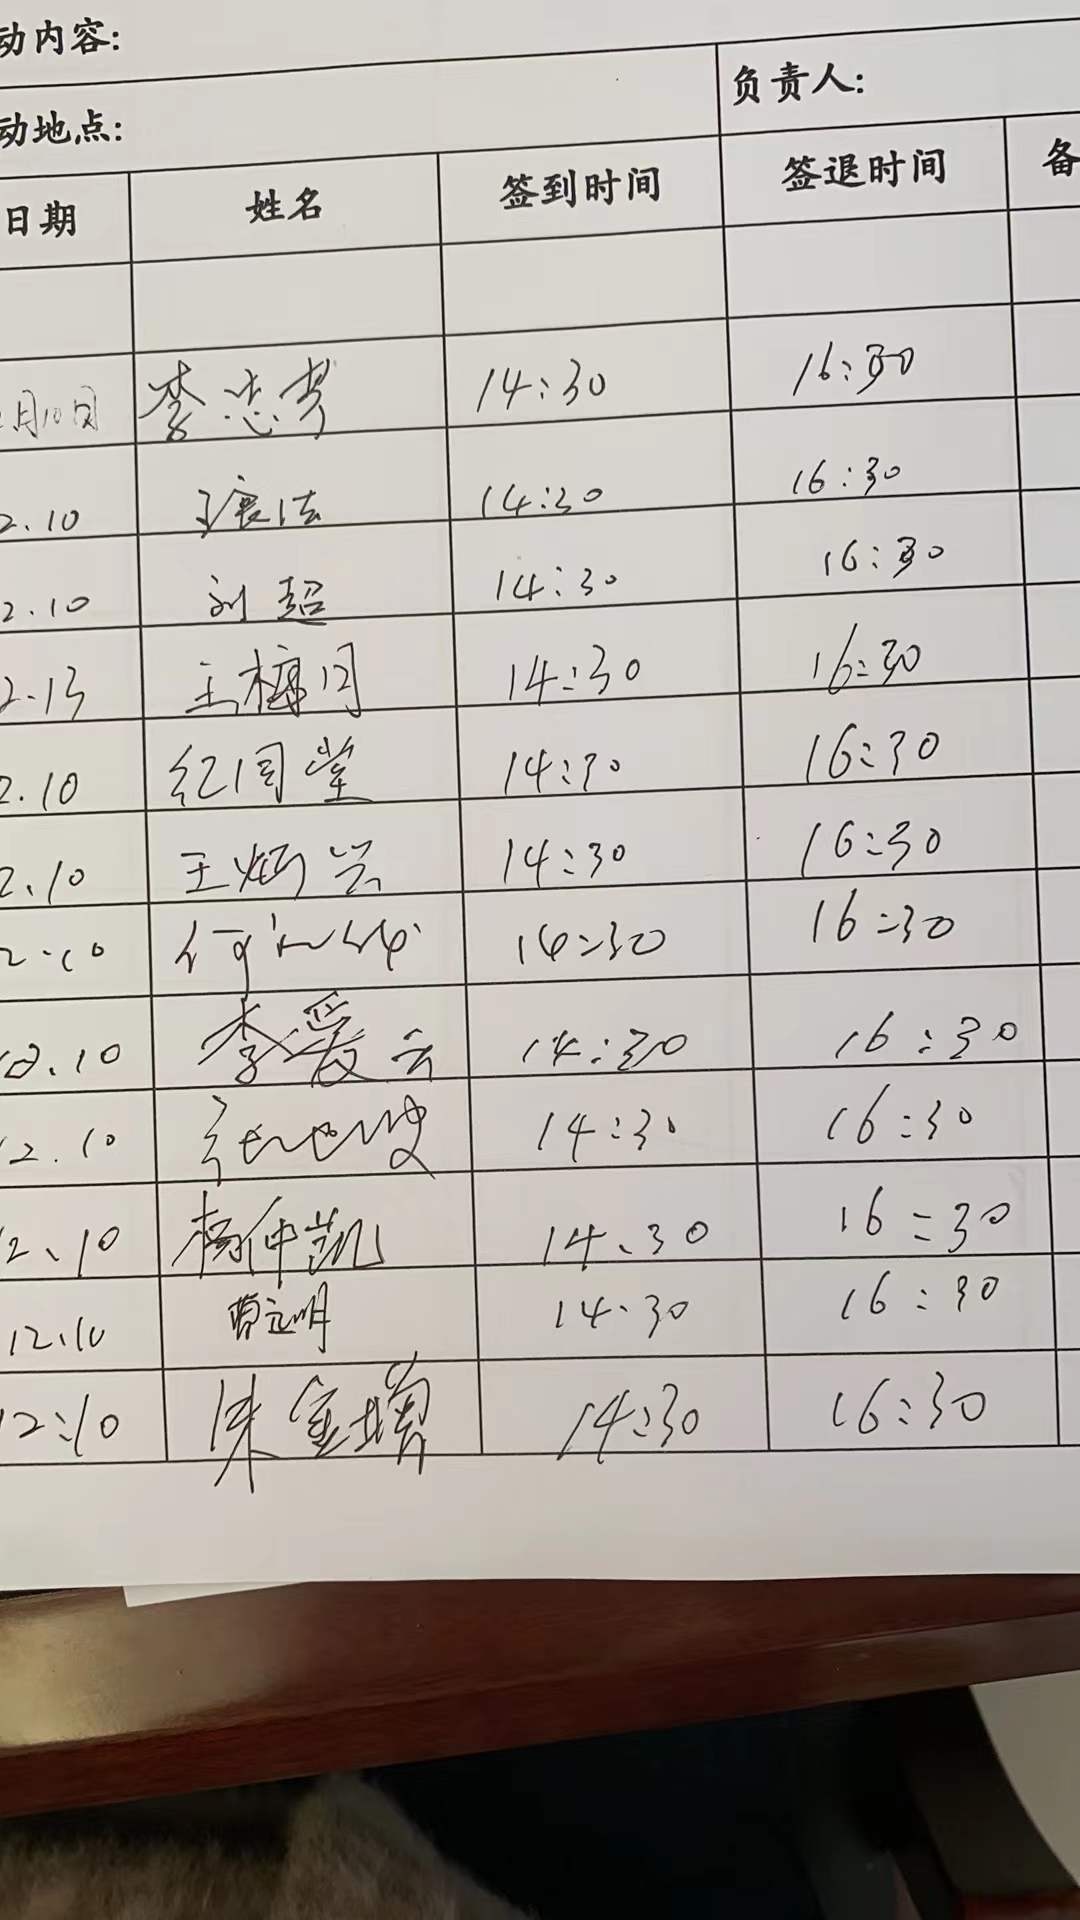 动内容:
动地点: 负责人:
日期 姓名 签到时间 签退时间 备
2月10日 李忠 14:30 16:30
2.10 14:30 16:30
2.10 刘超 14:30 16:30
2.13 王梅月 14:30 16:30
2.10 纪同堂 14:30 16:30
2.10 王炳兴 14:30 16:30
2.10 何 14:30 16:30
12.10 李爱云 14:30 16:30
12.10 14:30 16:30
12、10 杨仲凯 14、30 16:30
12.10 曹立明 14.30 16:30
12:10 宝瑞 14:30 16:30